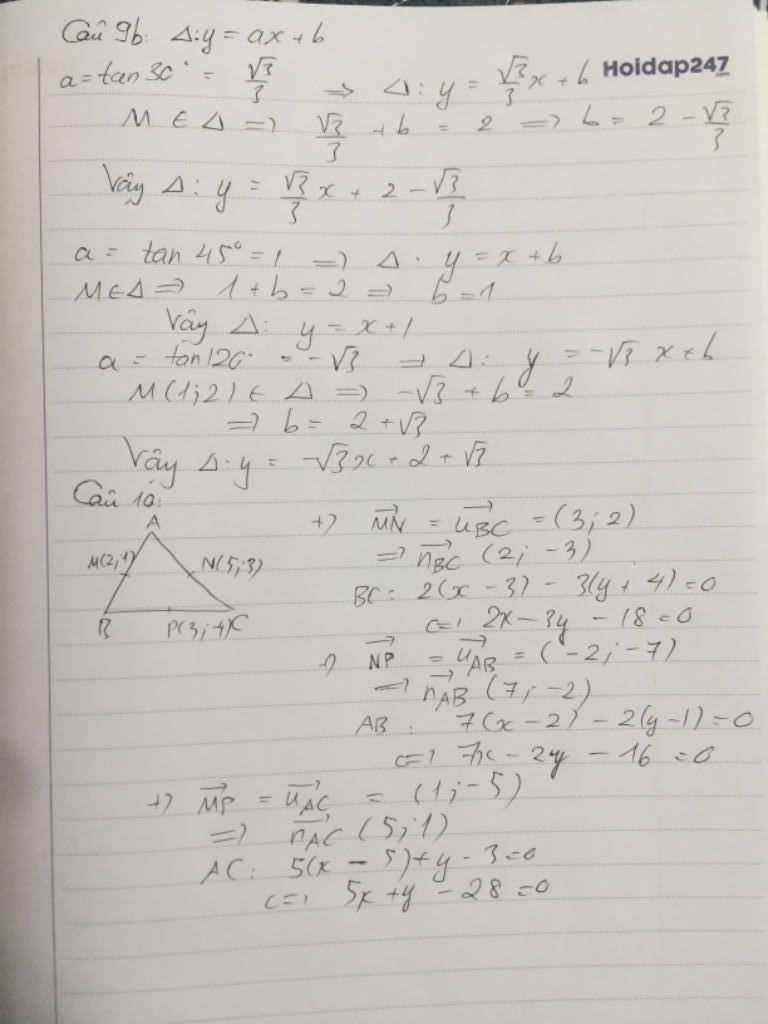 Câu 9b: Δ: y = ax + b
a = tan 30° = √3/3 => Δ: y = √3/3 x + b
Hoidap247
M ∈ Δ => √3/3 + b = 2 => b = 2 - √3/3
Vậy Δ: y = √3/3 x + 2 - √3/3
a = tan 45° = 1 => Δ: y = x + b
M ∈ Δ => 1 + b = 2 => b = 1
Vậy Δ: y = x + 1
a = tan 120° = -√3 => Δ: y = -√3 x + b
M(1;2) ∈ Δ => -√3 + b = 2
=> b = 2 + √3
Vậy Δ: y = -√3x + 2 + √3
Câu 10:
A
M(2;1)
N(5;3)
B
P(3;-4)
C
+) MN→ = u→BC = (3;2)
=> n→BC (2;-3)
BC: 2(x - 3) - 3(y + 4) = 0
<=> 2x - 3y - 18 = 0
+) NP→ = u→AB = (-2;-7)
=> n→AB (7;-2)
AB: 7(x - 2) - 2(y - 1) = 0
<=> 7x - 2y - 16 = 0
+) MP→ = u→AC = (1;-5)
=> n→AC (5;1)
AC: 5(x - 5) + y - 3 = 0
<=> 5x + y - 28 = 0